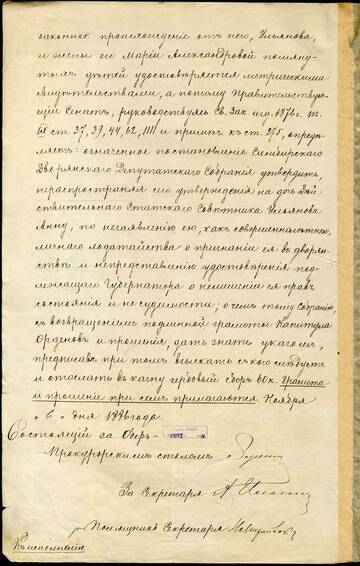 законное происхождение отъ него, Ульянова,
и жены его Маріи Александровой помяну-
тыхъ дѣтей удостовѣряется метрическими
свидѣтельствами, а потому Правительствую-
щій Сенатъ, руководствуясь Св. Зак. изд. 1876 г. т.
IX ст. 37, 39, 44, 62, 1111 и примѣч. къ ст. 275, опредѣ-
ляетъ: означенное постановленіе Симбирскаго
Дворянскаго Депутатскаго Собранія утвердить,
не распространяя его утвержденія на дочь Дѣй-
ствительнаго Статскаго Совѣтника Ульянова
Анну, по незаявленію ею, какъ совершеннолѣтнею,
личнаго ходатайства о признаніи ея въ дворян-
ствѣ и непредставленію удостовѣренія под-
лежащаго Губернатора о нелишеніи ея правъ
состоянія и не судимости; о чемъ тому Собранію,
съ возвращеніемъ подлинной грамоты Капитула
Орденовъ и прошенія, дать знать указомъ,
предписавъ при томъ взыскать съ кого слѣдуетъ
и отослать въ казну гербовый сборъ 60 к. Грамота
и прошеніе при семъ прилагаются. Ноября
" 6 " дня 1886 года.
Состоящій за Оберъ-
Прокурорскимъ столомъ
За Секретаря А.
Помощникъ Секретаря
Къ исполненію